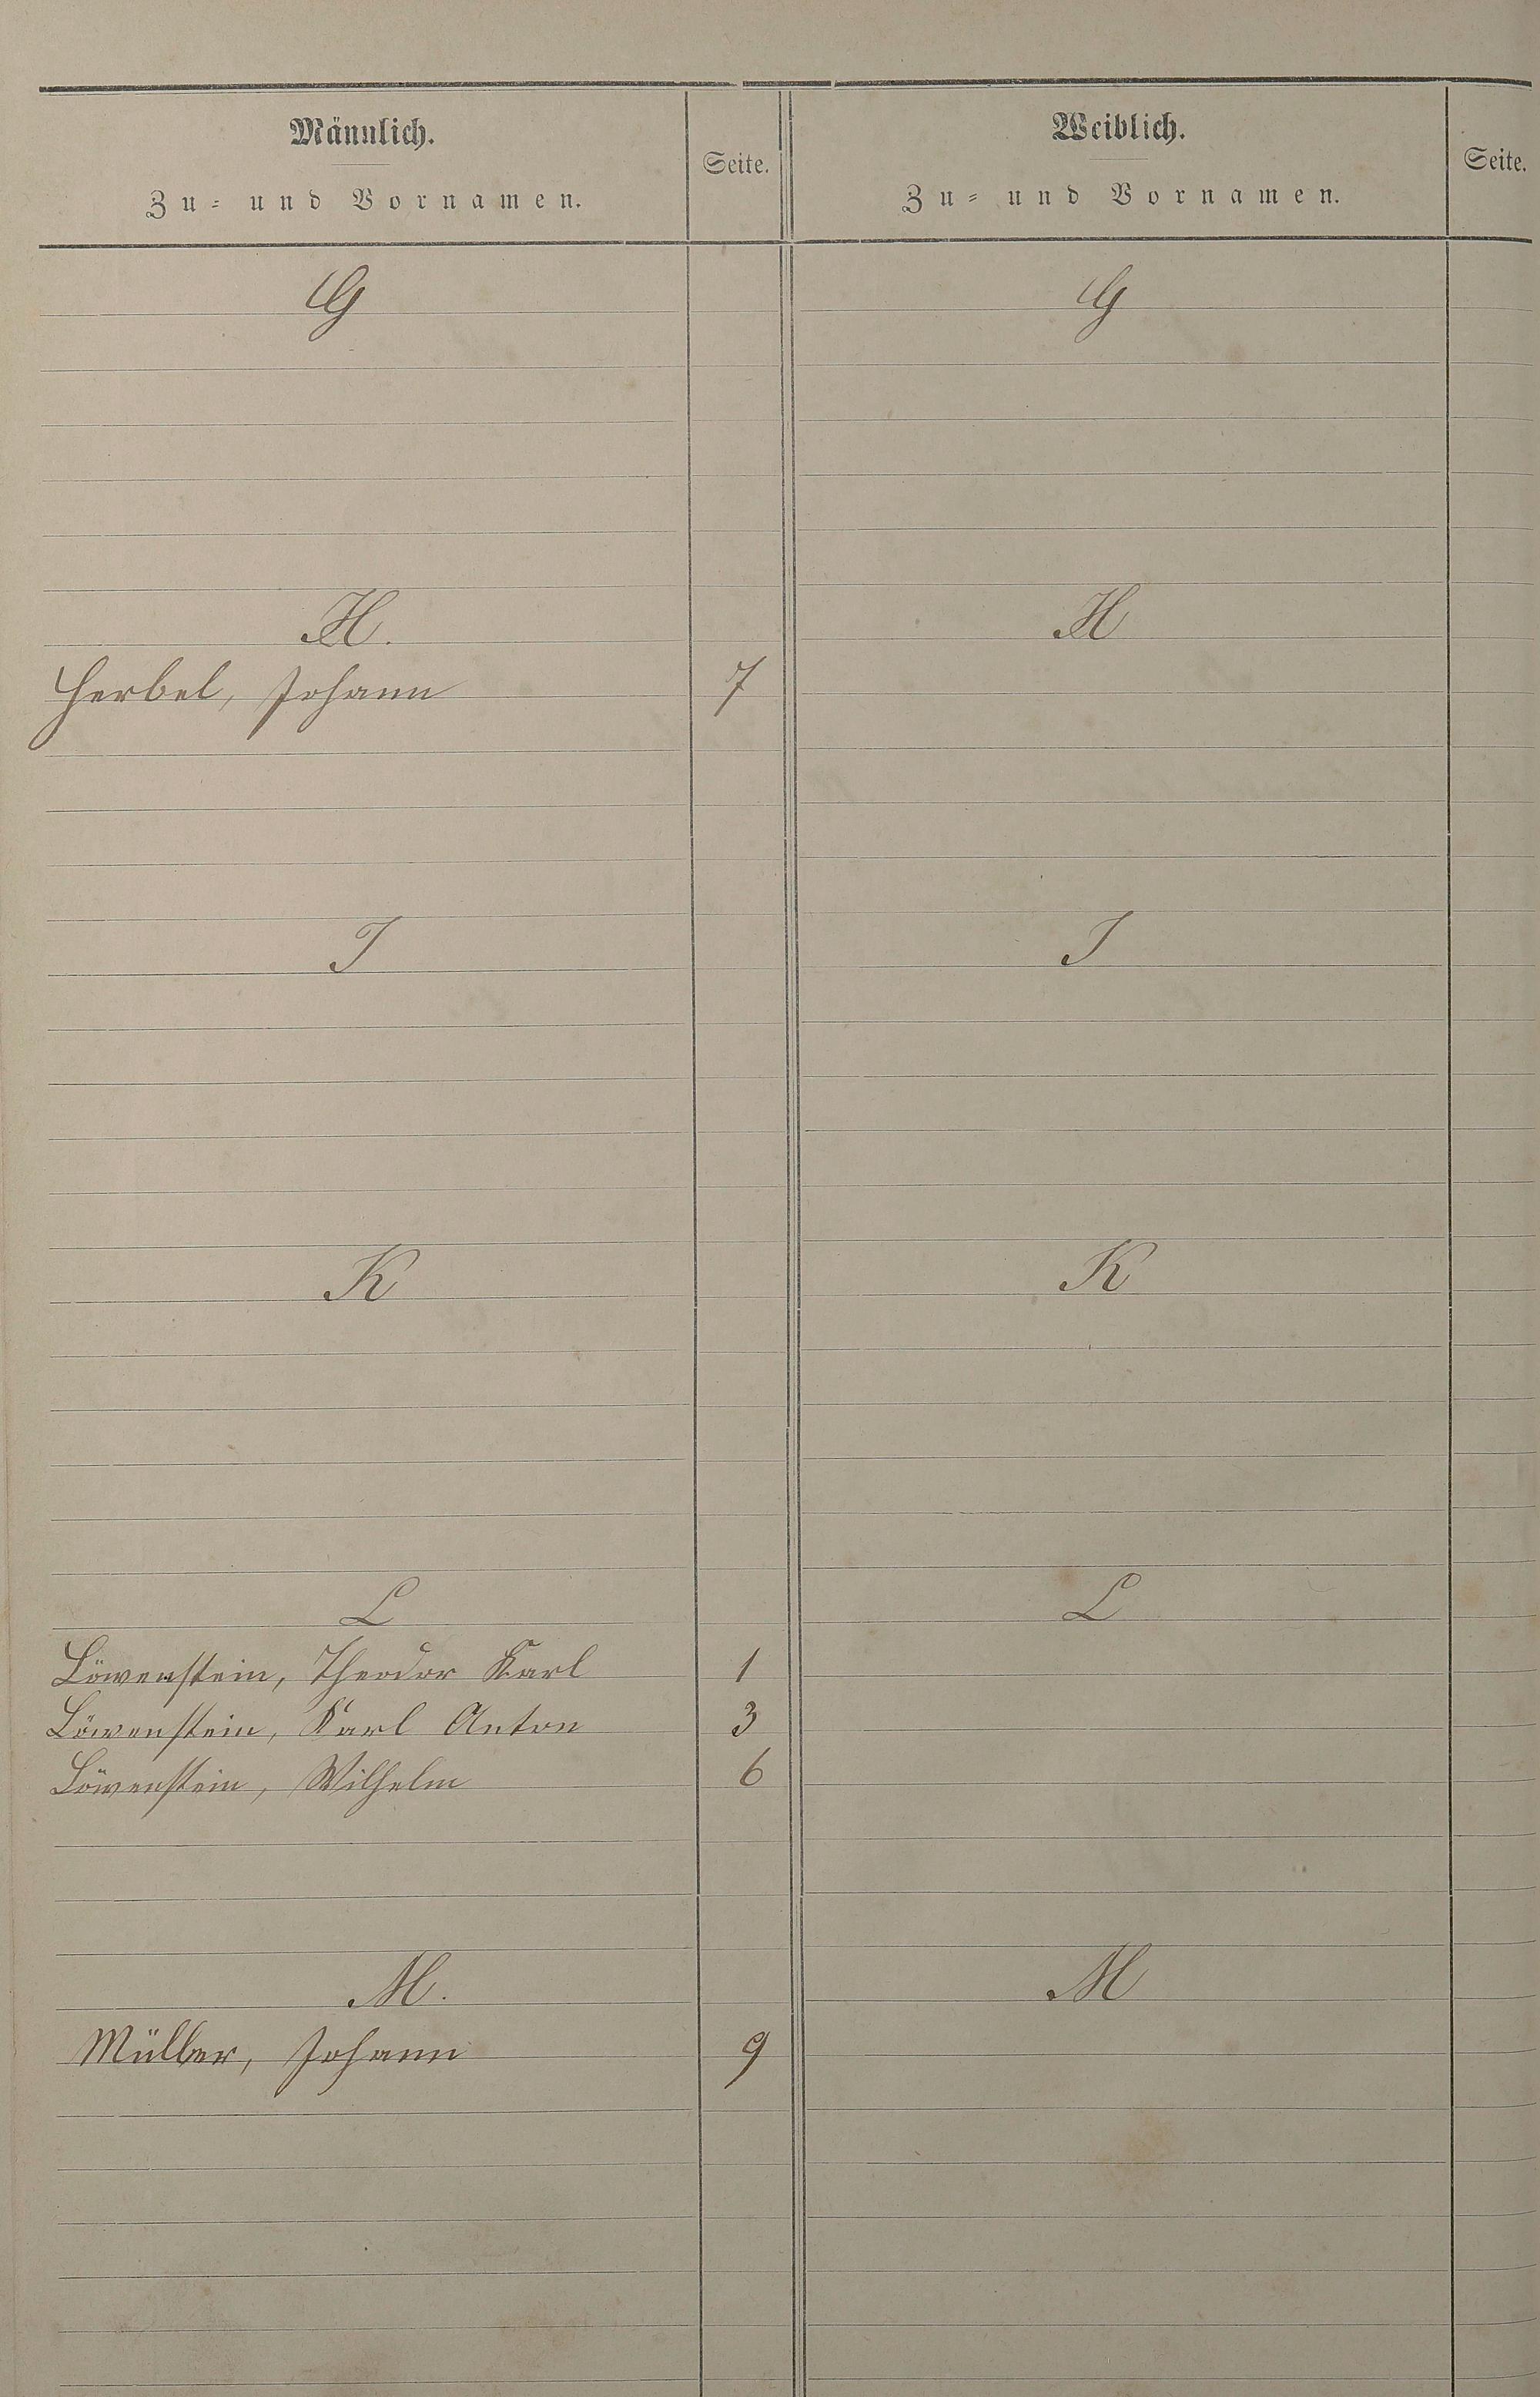 Männlich.
Zu- und Vornamen.
Seite.
Weiblich.
Zu- und Vornamen.
Seite.
G
G
H.
H
Herbel, Johann 7
J
J
K
K
L
L
Löwenstein, Theodor Karl 1
Löwenstein, Karl Anton 3
Löwenstein, Wilhelm 6
M.
M
Müller, Johann 9